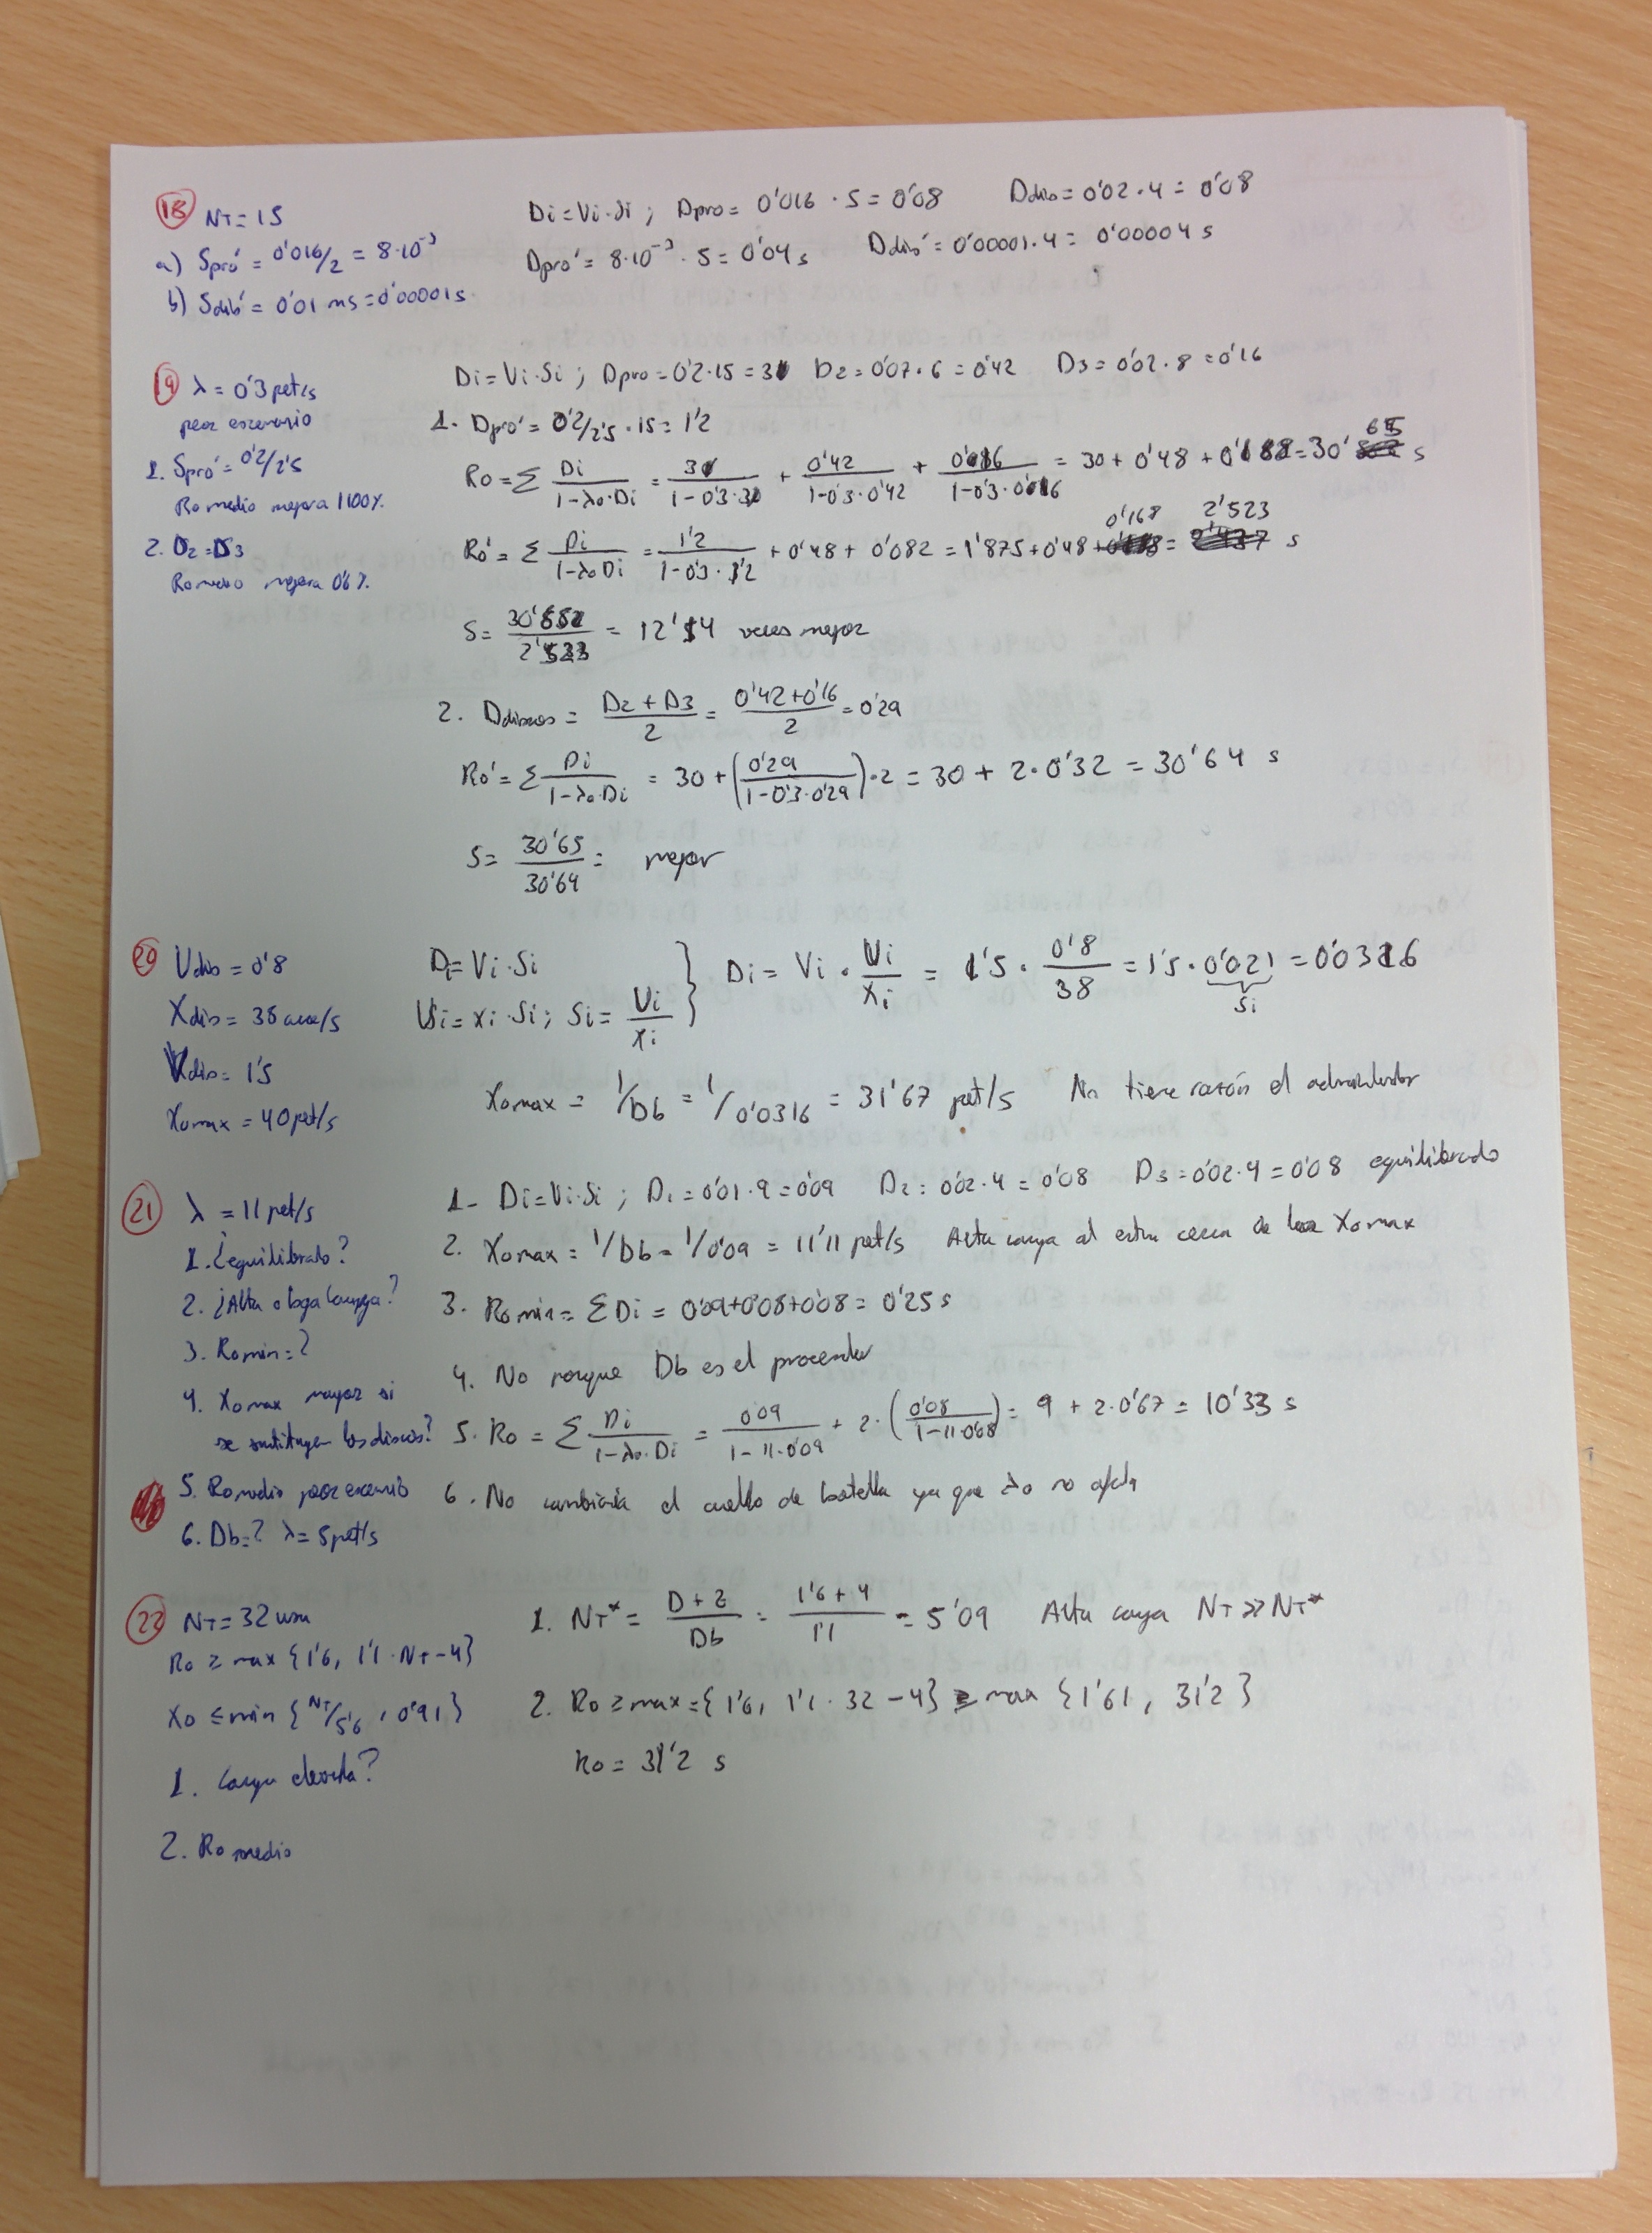 18 NT = 15
a) Spro' = 0'016/2 = 8·10⁻³
b) Sdib' = 0'01 ms = 0'00001 s
Di = Vi·Si ; Dpro = 0'016 · 5 = 0'08 Ddib = 0'02 · 4 = 0'08
Dpro' = 8·10⁻³ · 5 = 0'04 s Ddib' = 0'00001·4 = 0'00004 s
19 λ = 0'3 pet/s
peor escenario
1. Spro' = 0'2/2'5
Ro medio mejora 1100%
2. D2 = D3
Ro medio mejora 0'6%
Di = Vi·Si ; Dpro = 0'2·15 = 3 D2 = 0'07·6 = 0'42 D3 = 0'02·8 = 0'16
1. Dpro' = 0'2/2'5 · 15 = 1'2
Ro = Σ Di/(1-λo·Di) = 3/(1-0'3·3) + 0'42/(1-0'3·0'42) + 0'16/(1-0'3·0'16) = 30 + 0'48 + 0'168 = 30'65 s
Ro' = Σ Di/(1-λo Di) = 1'2/(1-0'3·1'2) + 0'48 + 0'082 = 1'875 + 0'48 + 0'168 = 2'523 s
S = 30'652/2'523 = 12'14 veces mejor
2. Ddiscos = (D2 + D3)/2 = (0'42+0'16)/2 = 0'29
Ro' = Σ Di/(1-λo·Di) = 30 + (0'29/(1-0'3·0'29))·2 = 30 + 2·0'32 = 30'64 s
S = 30'65/30'64 = mejor
20 Udib = 0'8
Xdib = 38 acce/s
Vdib = 1'5
Xomax = 40 pet/s
Di = Vi·Si
Ui = Xi·Si ; Si = Ui/Xi } Di = Vi · Ui/Xi = 1'5 · 0'8/38 = 1'5 · 0'021 = 0'0316
Si
Xomax = 1/Db = 1/0'0316 = 31'67 pet/s No tiene razón el
21 λ = 11 pet/s
1. ¿equilibrado?
2. ¿Alta o baja carga?
3. Romin = ?
4. Xomax mayor si
se sustituyen los discos?
5. Romedio peor escenario
6. Db = ? λ = 5 pet/s
1- Di = Vi·Si ; D1 = 0'01·9 = 0'09 D2 = 0'02·4 = 0'08 D3 = 0'02·4 = 0'08 equilibrado
2. Xomax = 1/Db = 1/0'09 = 11'11 pet/s Alta carga al estar cerca de Xomax
3. Romin = ΣDi = 0'09+0'08+0'08 = 0'25 s
4. No porque Db es el procesador
5. Ro = Σ Di/(1-λo·Di) = 0'09/(1-11·0'09) + 2·(0'08/(1-11·0'08)) = 9 + 2·0'67 = 10'33 s
6. No cambiaría el cuello de botella ya que λo no afecta
22 NT = 32 usu
Ro ≥ max {1'6, 1'1·NT-4}
Xo ≤ min {NT/5'6, 0'91}
1. Carga elevada?
2. Ro medio
1. NT* = (D+Z)/Db = (1'6+4)/1'1 = 5'09 Alta carga NT >> NT*
2. Ro ≥ max = {1'6, 1'1·32-4} ≥ max {1'61, 31'2}
Ro = 31'2 s